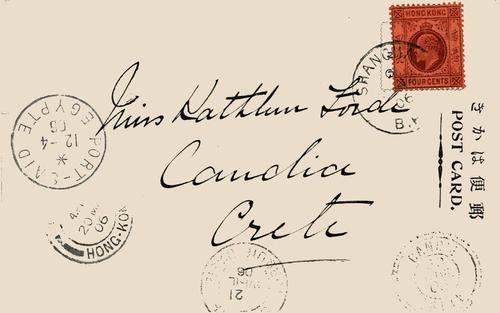 HONG KONG
FOUR CENTS
SHANGHAI
B.P.
Miss Kathleen Forde
Candia
Crete
郵便はかき
POST CARD.
PORT-SAID EGYPTE
12-4
06
20 MR
06
HONG-KON
21
06
CANDIE